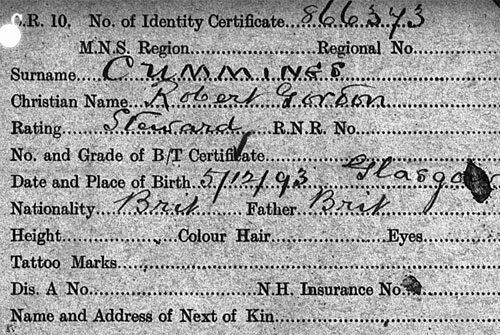 C.R. 10. No. of Identity Certificate...866373
M.N.S. Region.................... Regional No.............
Surname... CUMMINGS
Christian Name... Robert Gordon
Rating... Steward R.N.R. No.............
No. and Grade of B/T Certificate.............
Date and Place of Birth... 5/12/93 Glasgow
Nationality... Brit Father... Brit
Height............ Colour Hair............ Eyes............
Tattoo Marks............
Dis. A No............ N.H. Insurance No............
Name and Address of Next of Kin............